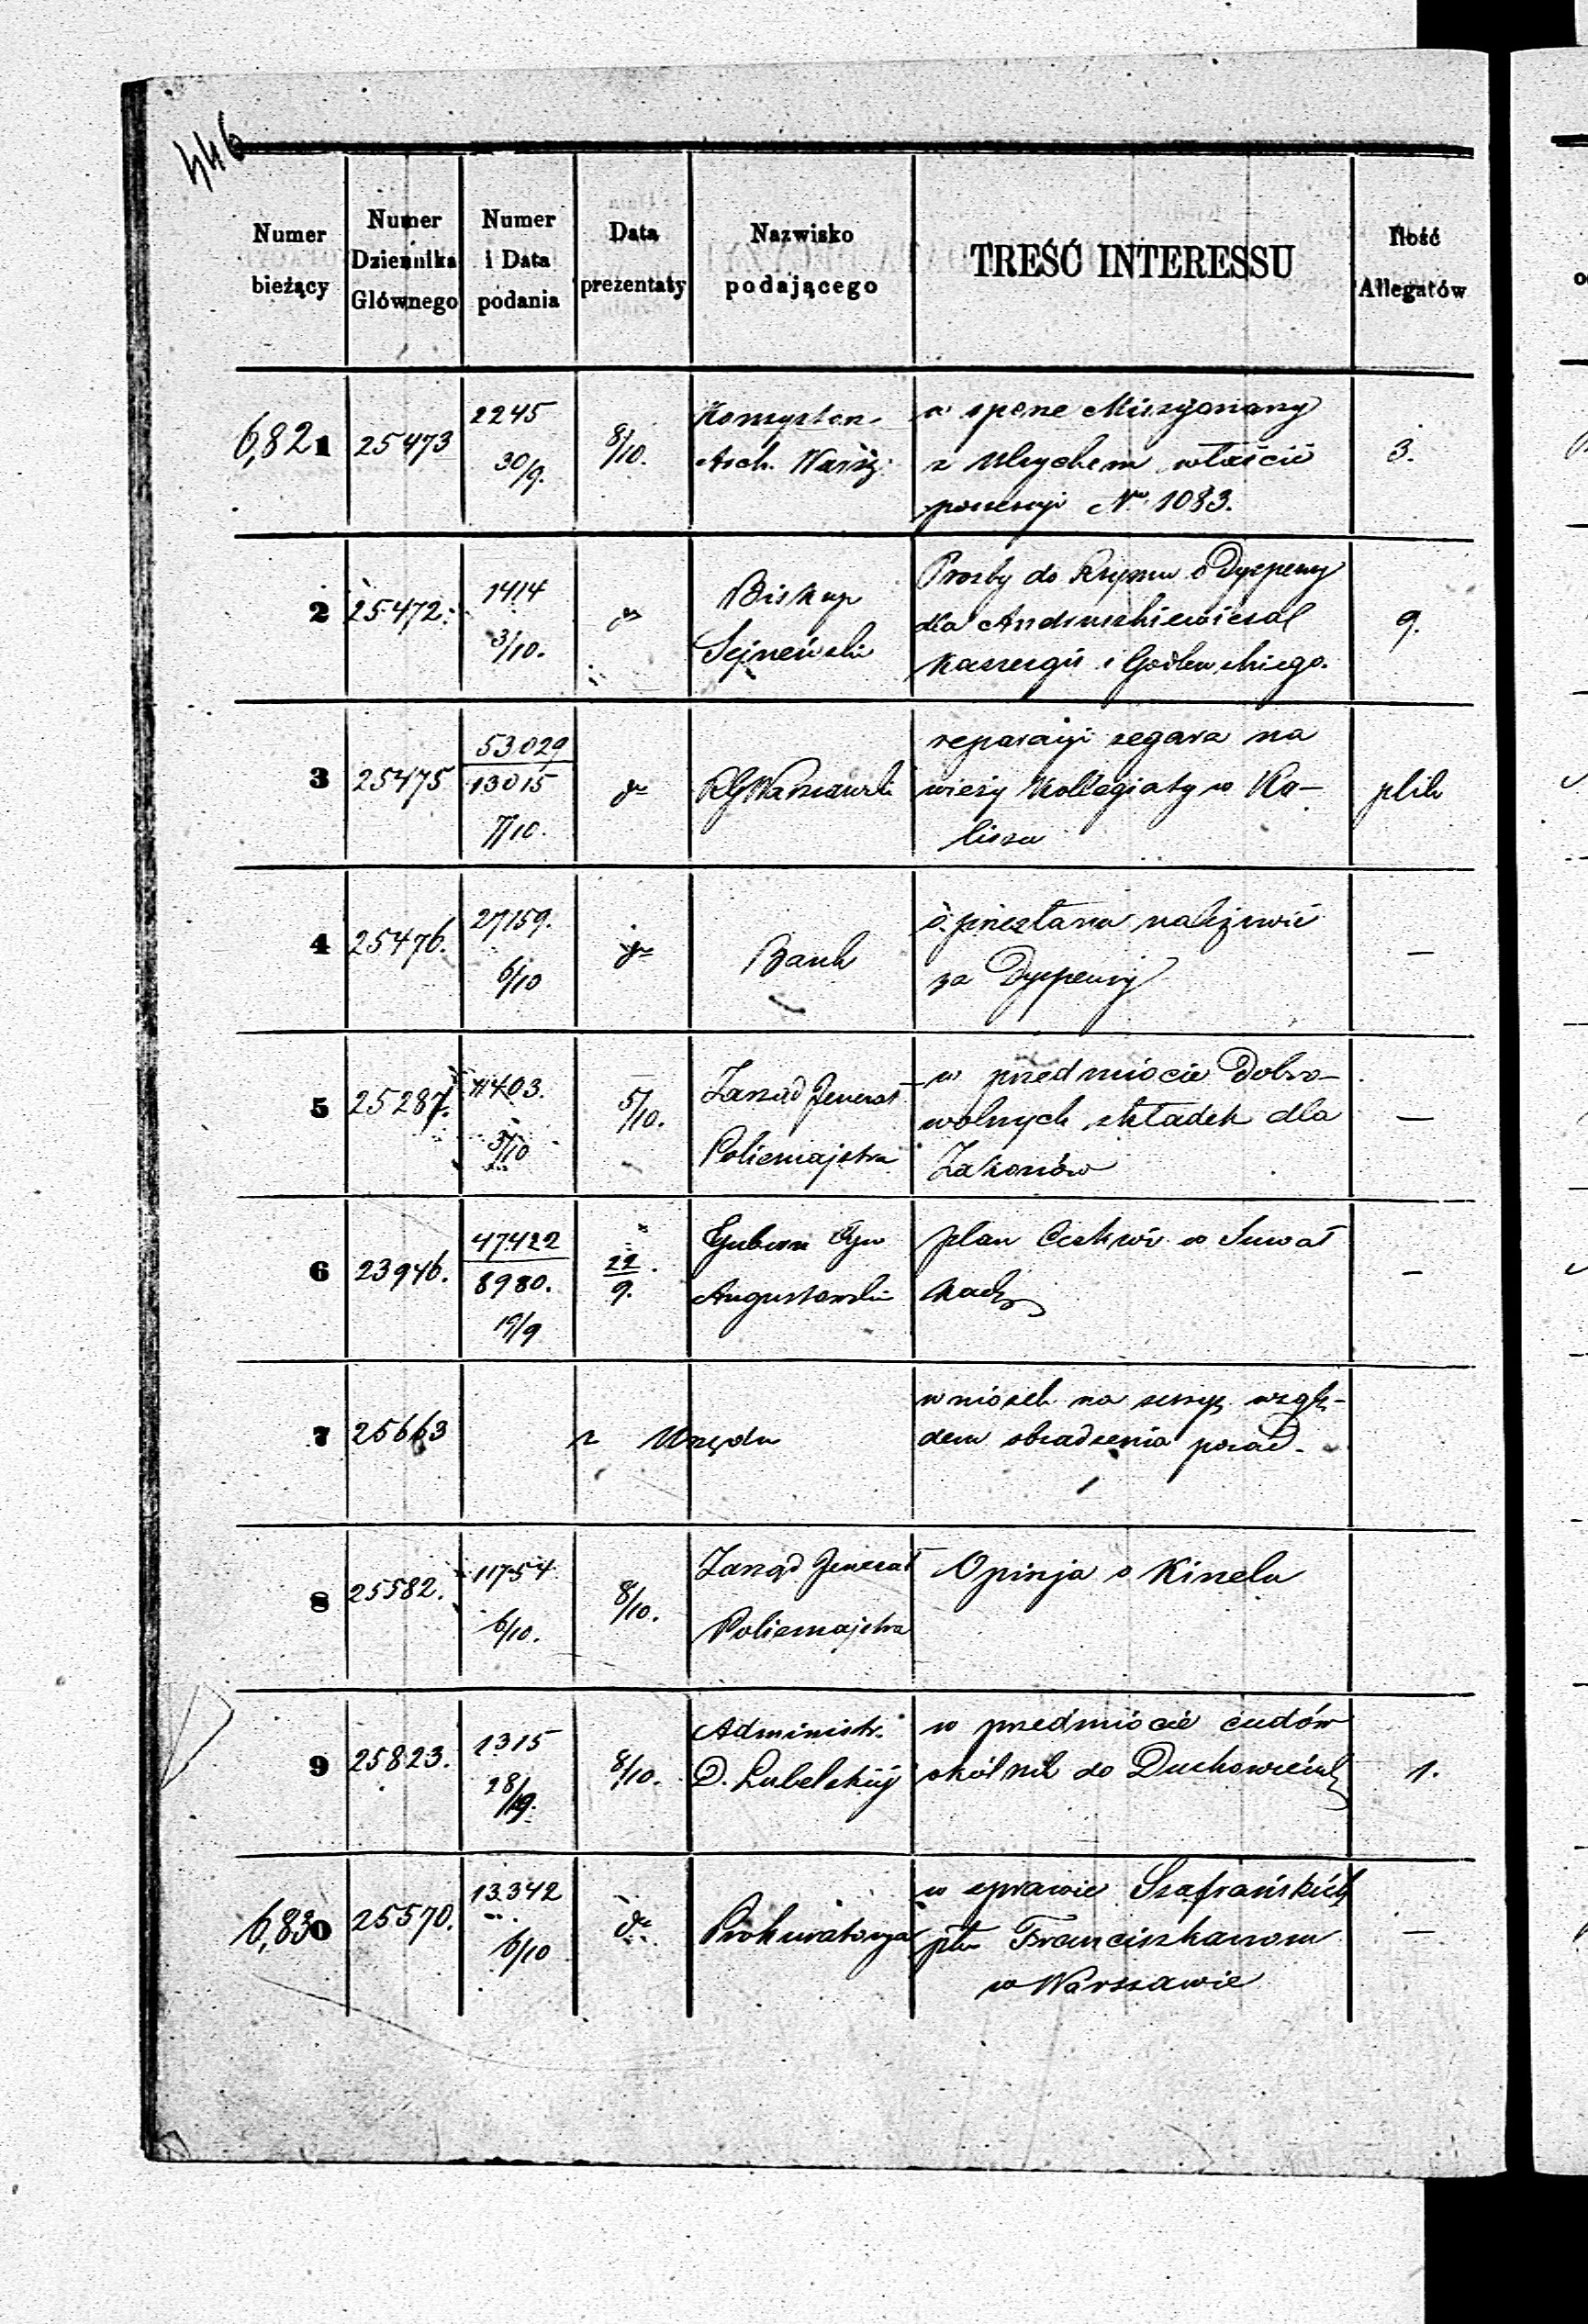 446
Numer bieżący
Numer Dziennika Glównego
Numer i Data podania
Data prezentaty
Nazwisko podającego
TREŚĆ INTERESSU
Ilość Allegatów
6,821 25473 2245 30/9. 8/10. Konsystor. Arch. Warsz. w sporze Missyonarzy 3.
z Ulrychem właścic
possesyi No 1083.
2 25472. 1414 3/10. do Biskup Sejneński Prozby do Rzymu o Dyspensy 9.
dla Andruszkiewicza
i Godlewskiego.
3 25475 53029 13015 7/10. do RGWarszawski reparacyi zegara na plik
wieży Kollegiaty w Ka-
liszu
4 25476. 27159. 6/10 do Bank o przesłaniu należności —
za Dyspensy
5 25287. 11403. 3/10 5/10. Zarząd Jenerał Policmajstra w przedmiocie Dobro- —
wolnych składek dla
Zakonów
6 23946. 47422 8980. 19/9 22/9. Gubern Cyw Augustowski plan Cerkwi w Suwał —
kach
7 25663 z Urzędu wniosek na sessyę wzglę-
dem obsadzenia posad.
8 25582. 11754 6/10. 8/10. Zarząd Jenerał Policmajstra Opinja o Kinelu
9 25823. 1315 28/9. 8/10. Administr. D. Lubelskiéj w przedmiocie cudów 1.
okólnik do Duchowieńs
6,830 25570. 13342 6/10 do Prokuratorya w sprawie Szafrańskich —
pko Franciszkanom
w Warszawie